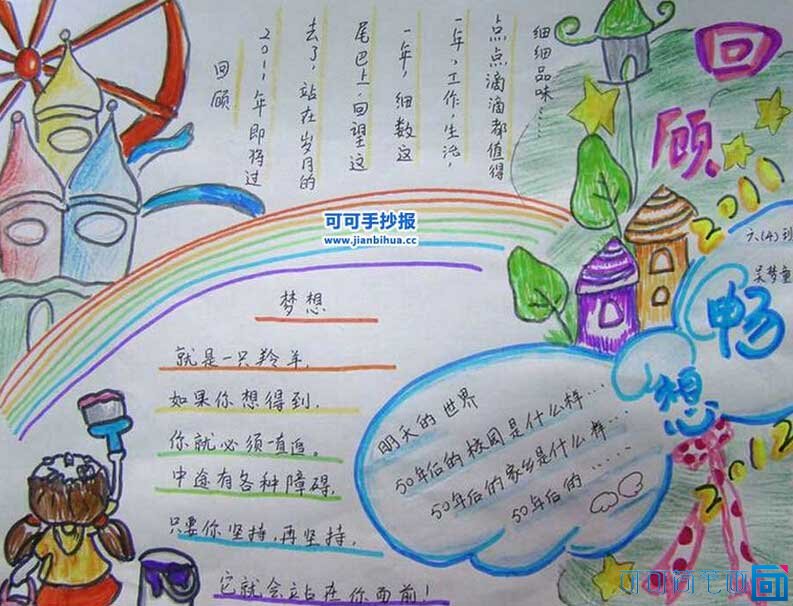 回顾
2011年即将过
去了，站在岁月的
尾巴上，回望这
一年，细数这
一年，工作，生活，
点点滴滴都值得
细细品味……
回顾
2011
六(4)
吴梦
畅想
2012
可可手抄报
www.jianbihua.cc
梦想
就是一只羚羊，
如果你想得到，
你就必须一直追。
中途有各种障碍，
只要你坚持，再坚持，
它就会站在你面前！
明天的世界
50年后的校园是什么样…
50年后的家乡是什么样…
50年后的……
可可简笔画